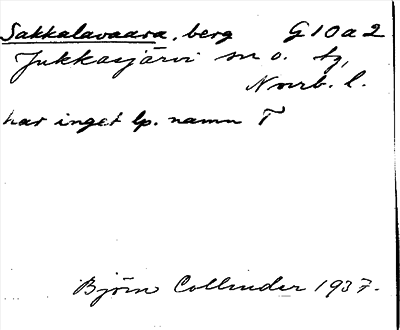 Sakkalavaara, berg G10a2
Jukkasjärvi sn o. tg,
Norrb. l.
har inget lp. namn T
Björn Collinder 1937.